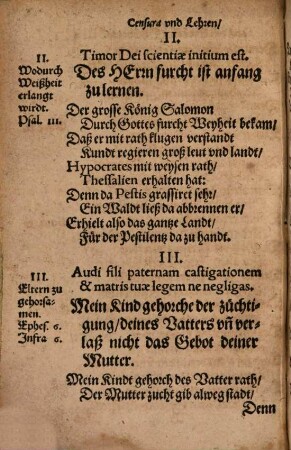 Censura vnd Lehren/
II.
Timor Dei scientiæ initium est.
II.
Wodurch
Weißheit
erlangt
wirdt.
Psal. 111.
Des HErrn furcht ist anfang
zu lernen.
Der grosse König Salomon
Durch Gottes furcht Weyheit bekam/
Daß er mit rath klugen verstandt
Kundt regieren groß leut vnd landt/
Hypocrates mit weysen rath/
Thessalien erhalten hat:
Denn da Pestis grassiret sehr/
Ein Waldt ließ da abbrennen er/
Erhielt also das gantze Landt/
Für der Pestilentz da zu handt.
III.
Audi fili paternam castigationem
& matris tuæ legem ne negligas.
III.
Eltern zu
gehorsa-
men.
Ephes. 6.
Infra 6.
Mein Kind gehorche der züchti-
gung/deines Vatters vñ ver-
laß nicht das Gebot deiner
Mutter.
Mein Kindt gehorch des Vatter rath/
Der Mutter zucht gib alweg stadt/
Denn